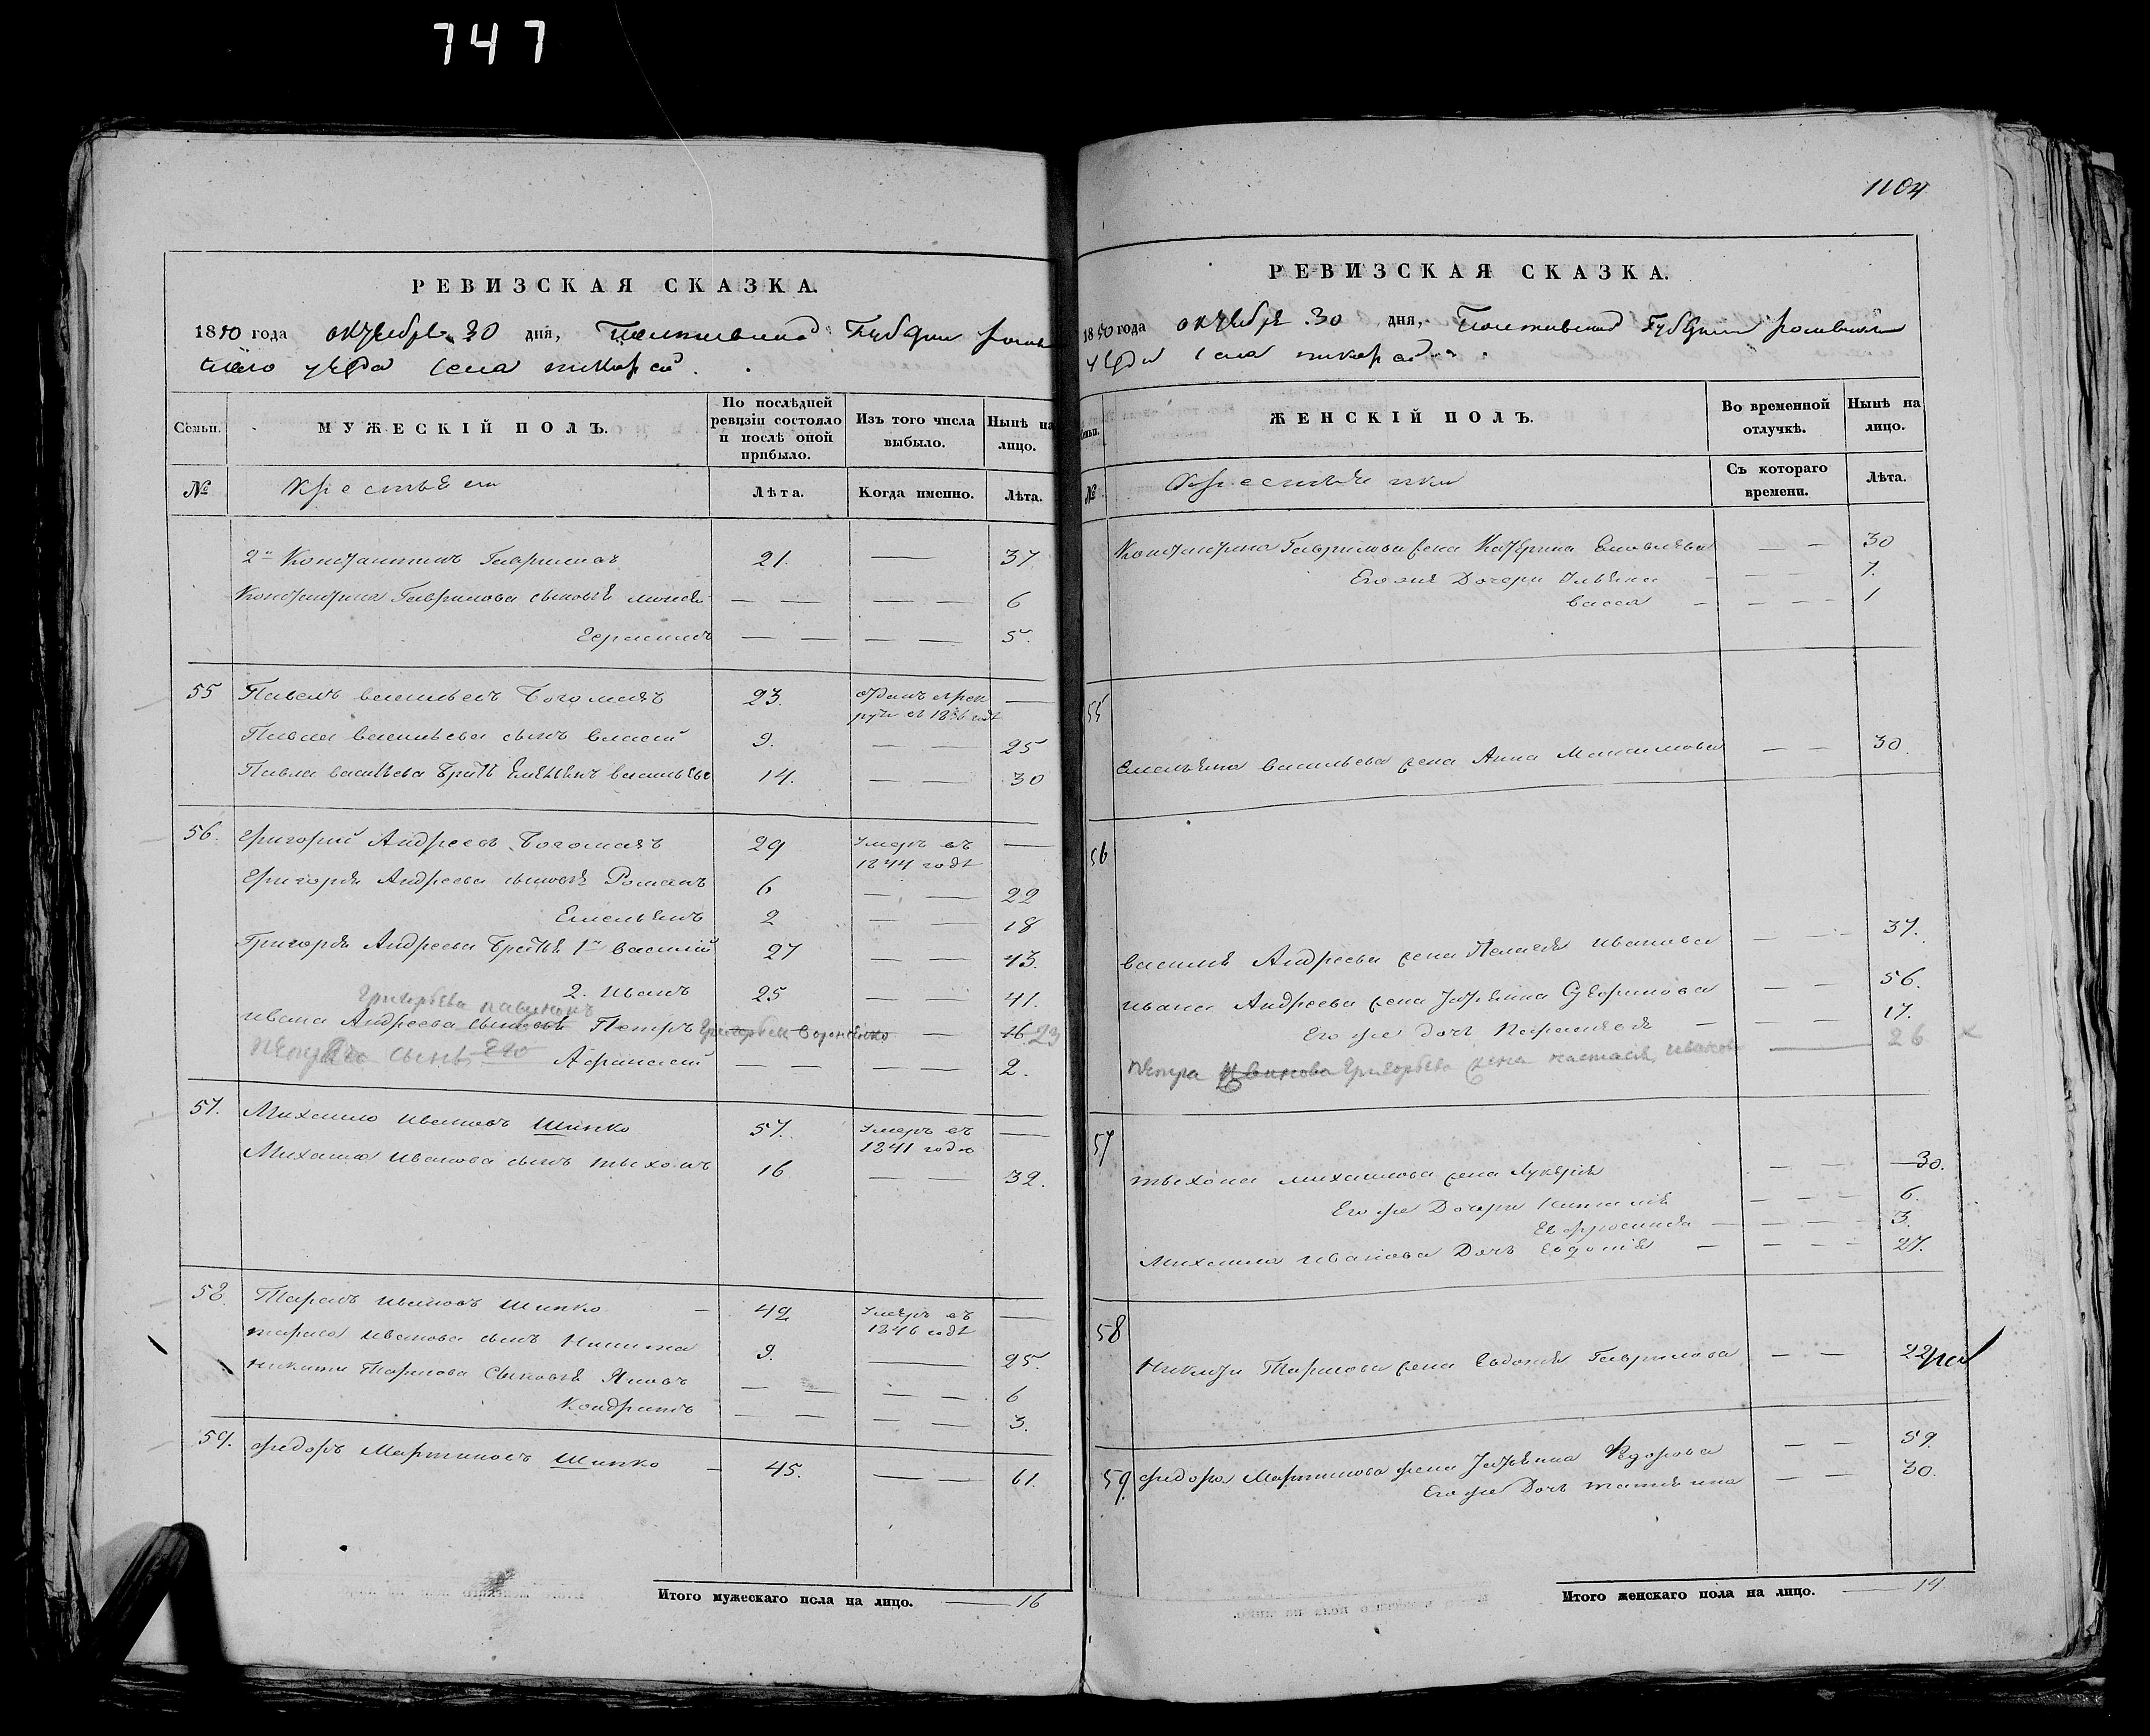 747
1104
РЕВИЗСКАЯ СКАЗКА.
1850 года октября 30 дня, Полтавской Губернии
уезда села
Семьи.
МУЖЕСКІЙ ПОЛЪ.
По послѣдней ревизіи состояло и послѣ оной прибыло.
Изъ того числа выбыло.
Нынѣ на лицо.
№
Крестьяне
Лѣта.
Когда именно.
Лѣта.
2й Константинъ Гавриловъ 21. — 37
Константина Гаврилова сыновья — — — — 6
— — — — 5
55 Павелъ Васильевъ 23. отданъ в рекруты въ 1836 годе —
Павла Васильева сынъ Власий 9. — — 25
Павла Васильева братъ Емельянъ Васильевъ 14. — — 30
56. Григорий Андреевъ 29 Умеръ въ 1844 годе —
Григория Андреева сыновья Романъ 6 — — 22
Емельянъ 2 — — 18
Григория Андреева братья 1й Василий 27 — — 43.
2. Иванъ 25 — — 41.
Григорьева
Ивана Андреева сыновья Петръ — 16. 23
сынъ его Афанасий — — — — 2.
57. Михайло Ивановъ Шинко 57. Умеръ въ 1841 году —
Михайла Иванова сынъ Тыхонъ 16 — — 32.
58. Тарасъ Ивановъ Шинко — 49 Умеръ въ 1846 годе —
Тараса Иванова сынъ Никита 9. — 25.
Никиты Тарасова сыновья Яковъ — — — — 6
Кондратъ — — — — 3.
59. Федоръ Мартиновъ Шинко — 45. — — 61.
Итого мужескаго пола на лицо. — 16
РЕВИЗСКАЯ СКАЗКА.
1850 года октября 30 дня, Полтавской Губернии
уезда села
Семьи.
ЖЕНСКІЙ ПОЛЪ.
Во временной отлучкѣ.
Нынѣ на лицо.
№
Крестьянки
Съ котораго времени.
Лѣта.
Константина Гаврилова жена Катерина — — 30
Его же Дочери Ульяна — — — 7.
Васса — — — — 1
55
Емельяна Васильева жена Анна Максимова — — 30.
56
Василия Андреева жена Пелагея Иванова — — — 37.
Ивана Андреева жена Татьяна — — 56.
Его же дочь Параскея — — — — 17.
Петра Григорьева жена Настасья Иванова — 26 x
57
Тыхона Михайлова жена Лукерия — — — 30.
Его же Дочери Наталия — — — 6.
Евфросиния — — — — 3.
Михайла Иванова Дочь Евдокия — — — — 27.
58
Никиты Тарасова жена Евдокия Гаврилова — — 22
59 Федора Мартинова жена Татьяна Федорова — — 59
Его же Дочь Татьяна — — 30.
Итого женскаго пола на лицо. — 14